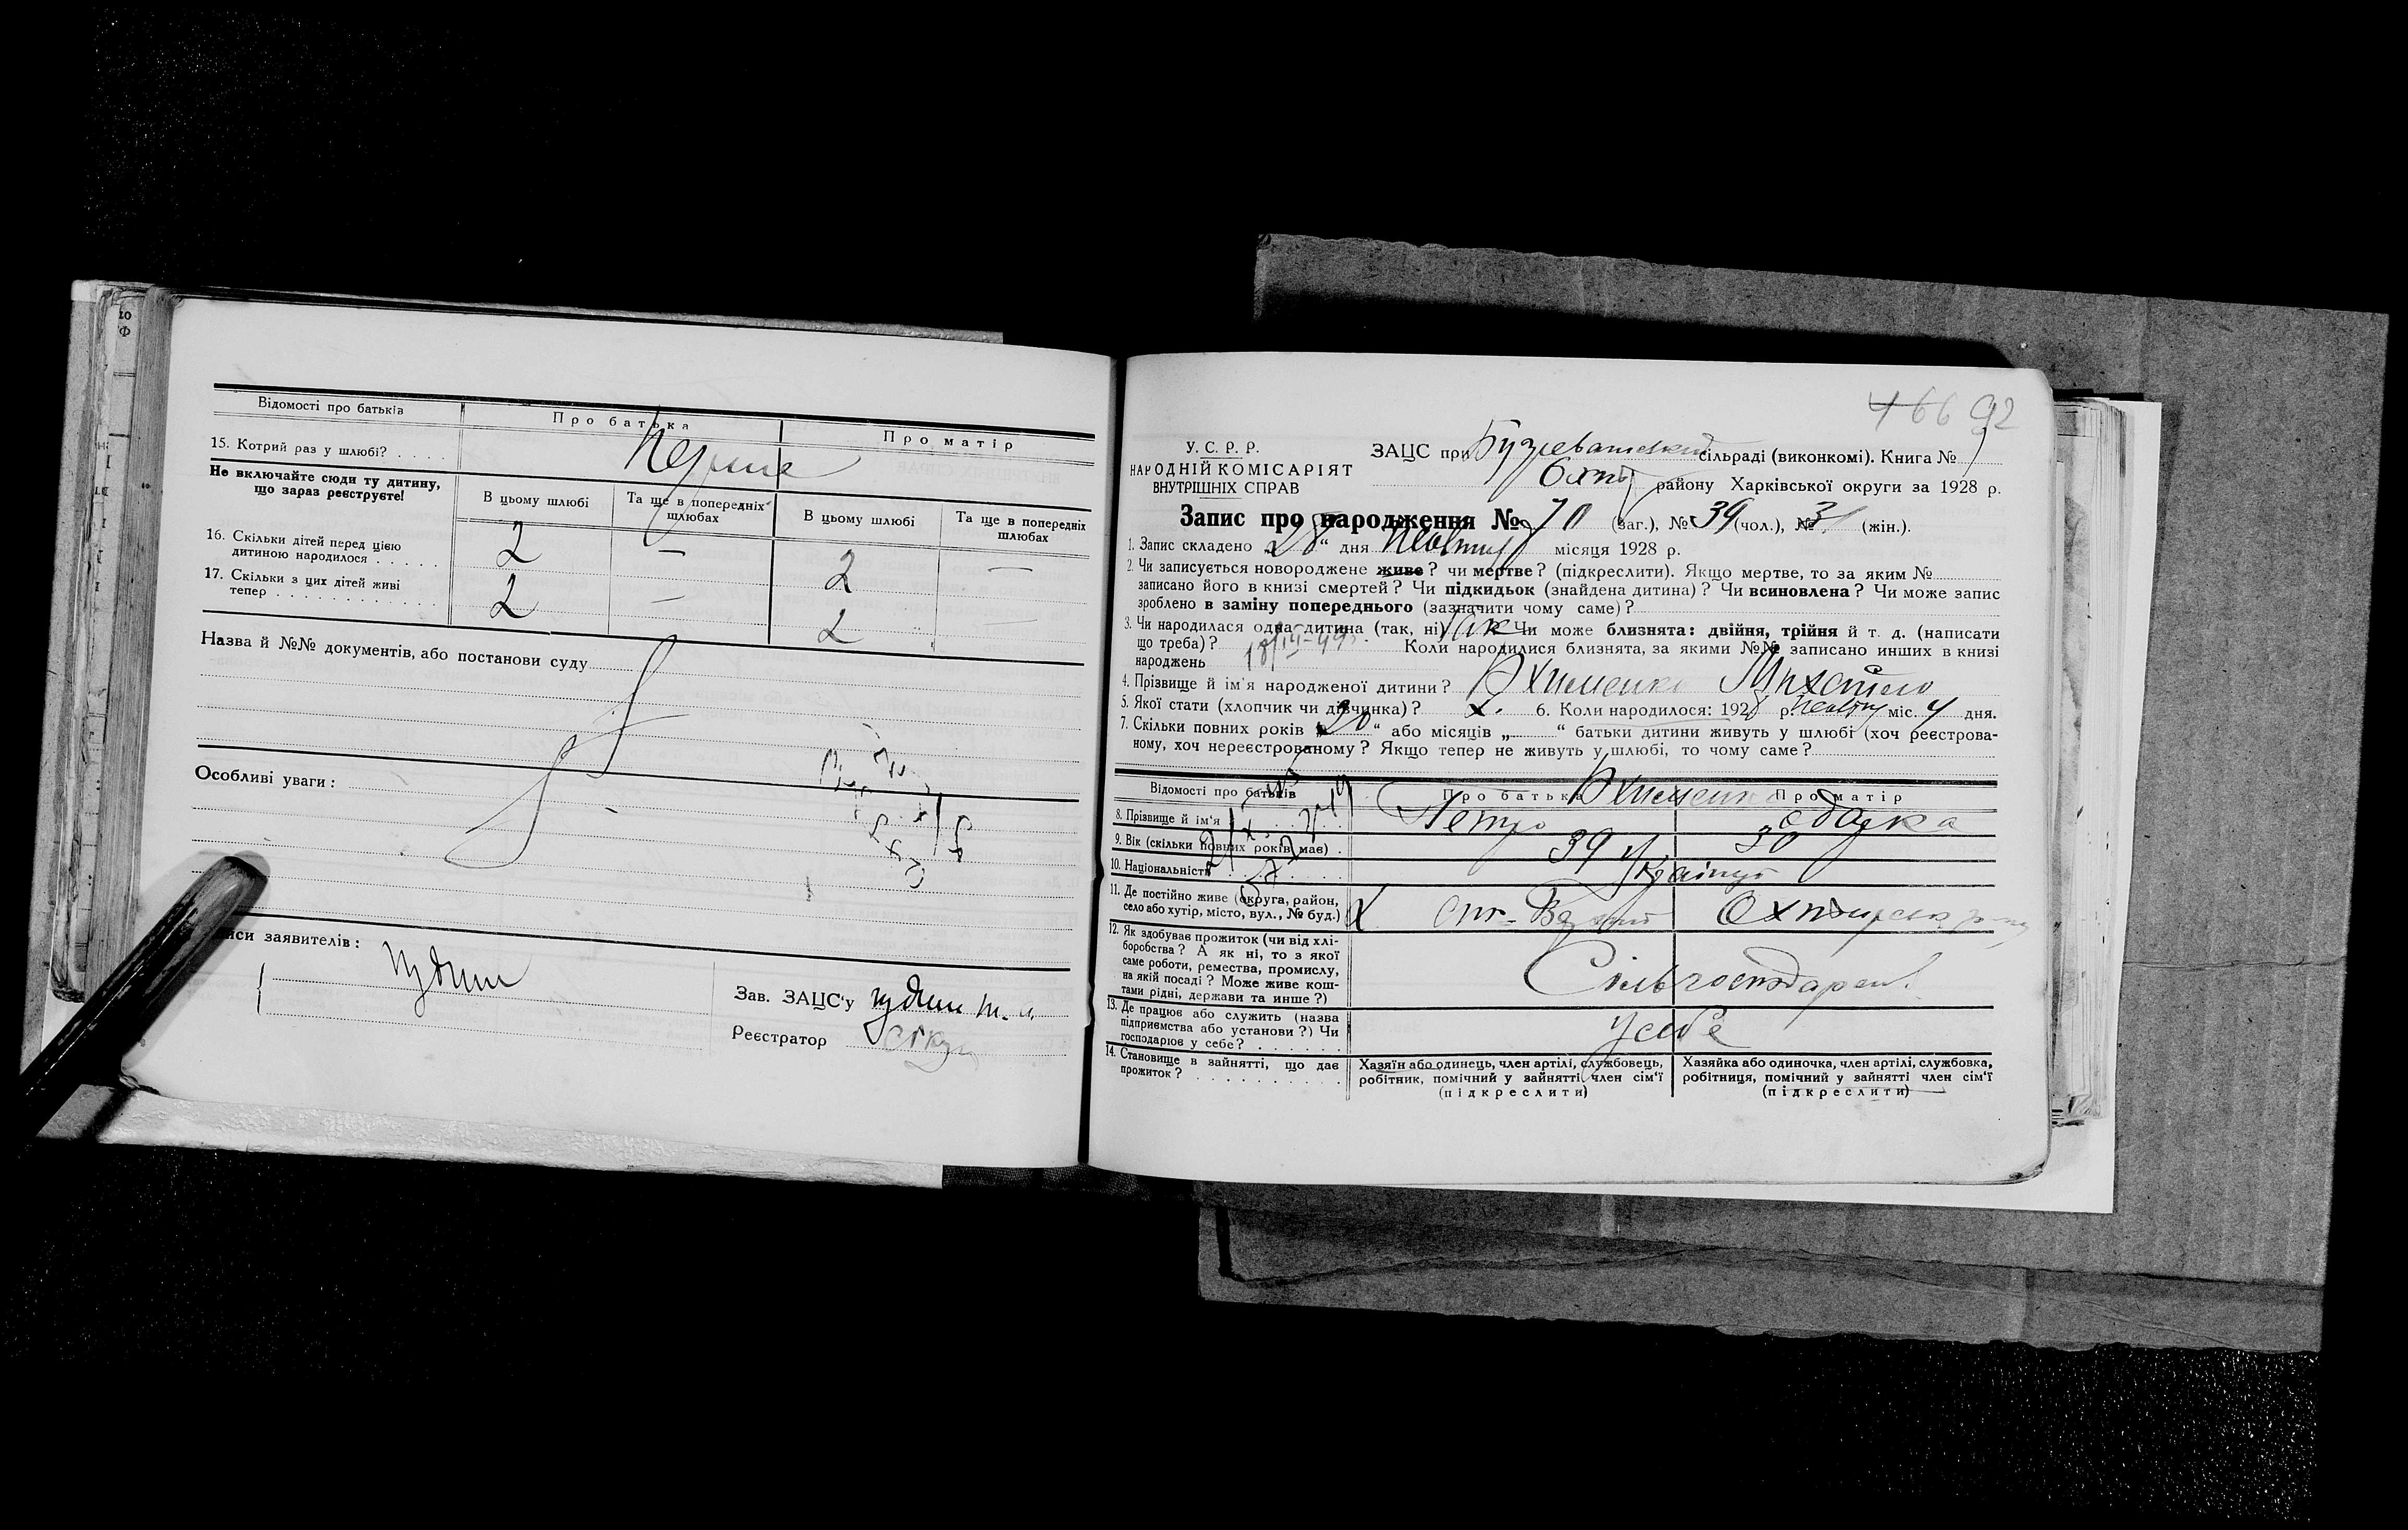 Відомості про батьків
Про батька
Про матір
15. Котрий раз у шлюбі? . . . .
Не включайте сюди ту дитину,
що зараз реєструєте!
В цьому шлюбі
Та ще в попередніх
шлюбах
В цьому шлюбі
Та ще в попередніх
шлюбах
16. Скільки дітей перед цією
дитиною народилося . . . . .
2 — 2 —
17. Скільки з цих дітей живі
тепер . . . . . . . . . . . .
2 — 2 —
Назва й №№ документів, або постанови суду
Особливі уваги:
иси заявителів:
Зав. ЗАЦС'у
Реєстратор
466 92
У. С. Р. Р.
НАРОДНІЙ КОМІСАРІЯТ
ВНУТРІШНІХ СПРАВ
ЗАЦС при сільраді (виконкомі). Книга №
району Харківської округи за 1928 р.
Запис про народження № 70 (заг.), № 39 (чол.), № 31 (жін.).
1. Запис складено „28“ дня місяця 1928 р.
2. Чи записується новороджене живе? чи мертве? (підкреслити). Якщо мертве, то за яким №
записано його в книзі смертей? Чи підкидьок (знайдена дитина)? Чи всиновлена? Чи може запис
зроблено в заміну попереднього (зазначити чому саме)?
3. Чи народилася одна дитина (так, ні) Так Чи може близнята: двійня, трійня й т. д. (написати
що треба)? Коли народилися близнята, за якими №№ записано инших в книзі
народжень
4. Прізвище й ім'я народженої дитини? Михайло
5. Якої стати (хлопчик чи дівчинка)? х. 6. Коли народилося: 1928 р. міс. 4 дня.
7. Скільки повних років „20“ або місяців „ “ батьки дитини живуть у шлюбі (хоч реєстрова-
ному, хоч нереєстрованому? Якщо тепер не живуть у шлюбі, то чому саме?
Відомості про батьків
Про батька
Про матір
8. Прізвище й ім'я
Петро Одарка
9. Вік (скільки повних років має) .
39 30
10. Національність
11. Де постійно живе (округа, район,
село або хутір, місто, вул., № буд.)
12. Як здобуває прожиток (чи від хлі-
боробства? А як ні, то з якої
саме роботи, ремества, промислу,
на якій посаді? Може живе кош-
тами рідні, держави та инше?)
13. Де працює або служить (назва
підприємства або установи?) Чи
господарює у себе? . . . . . .
у себе
14. Становище в зайнятті, що дає
прожиток? . . . . . . . . . .
Хазяїн або одинець, член артілі, службовець,
робітник, помічний у зайнятті член сім'ї
(підкреслити)
Хазяйка або одиночка, член артілі, службовка,
робітниця, помічний у зайнятті член сім'ї
(підкреслити)